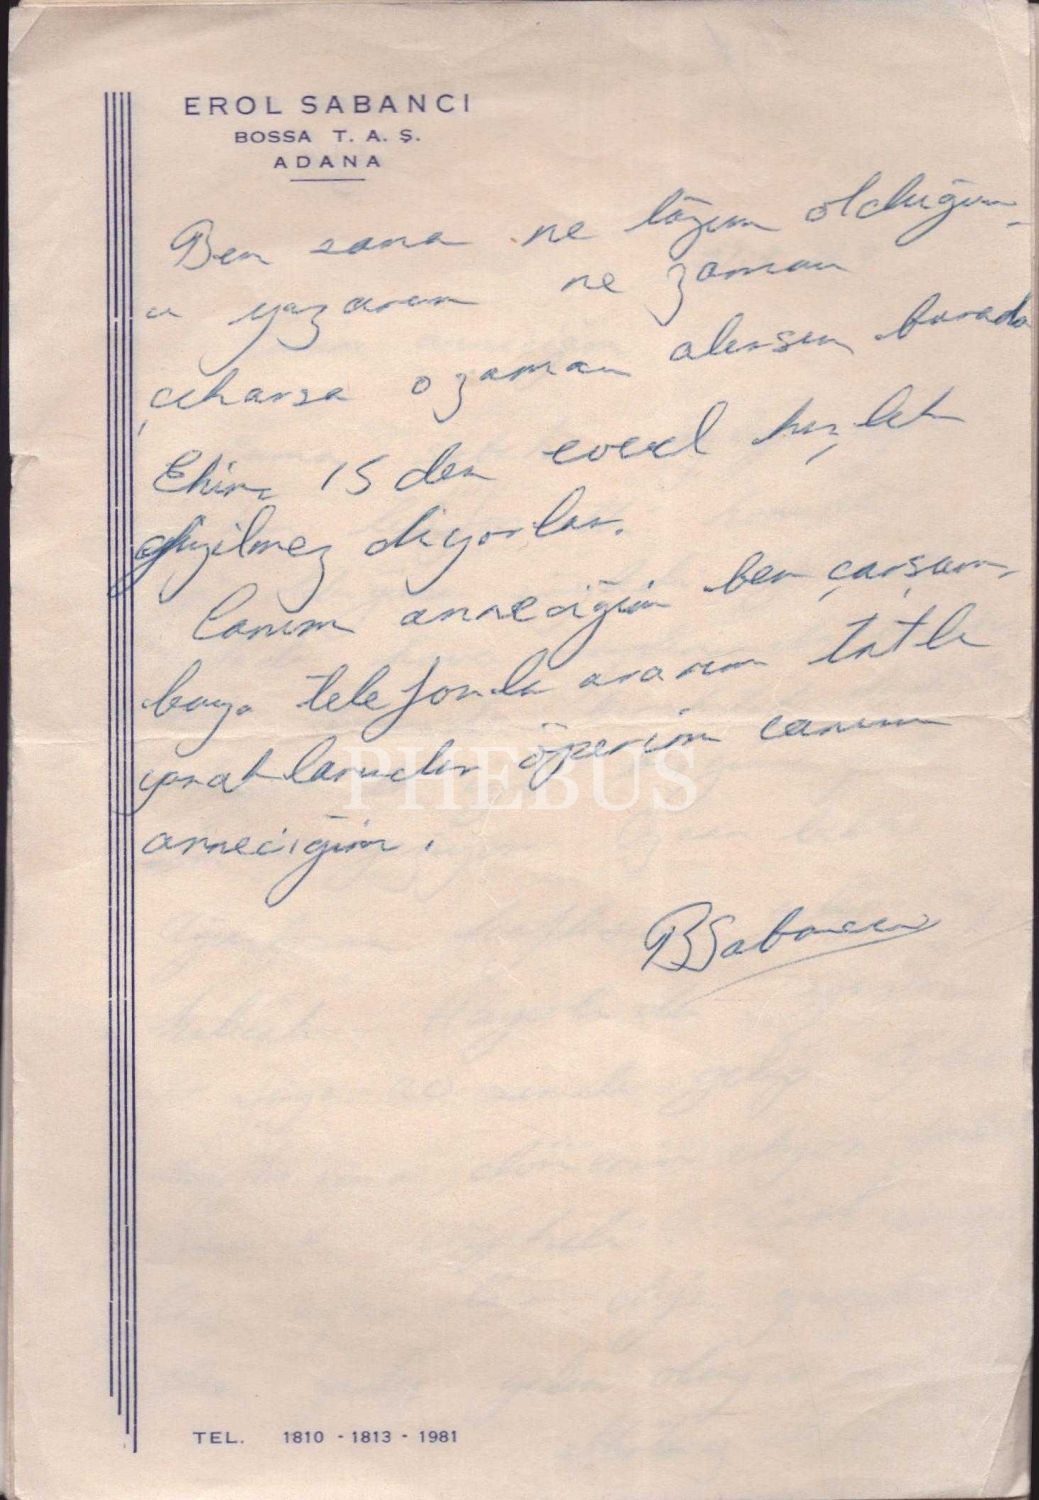 EROL SABANCI
BOSSA T. A. Ş.
ADANA
Ben sana ne lâzım olduğun-
u yazarım ne zaman
çıkarsa o zaman alırsın burada
Ekim 15 den evvel kışlık
giyilmez diyorlar.
Canım anneciğim ben çarşam-
baya telefonla ararım tatlı
yanaklarından öperim canım
anneciğim.
BSabancı
PHEBUS
TEL. 1810 - 1813 - 1981